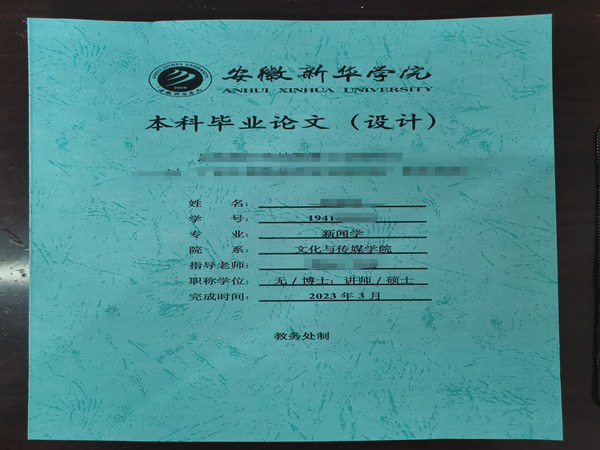 安徽新华学院
ANHUI XINHUA UNIVERSITY
本科毕业论文（设计）
姓 名：
学 号：1941
专 业：新闻学
院 系：文化与传媒学院
指导老师：
职称学位：无/博士；讲师/硕士
完成时间：2023 年 3 月
教务处制